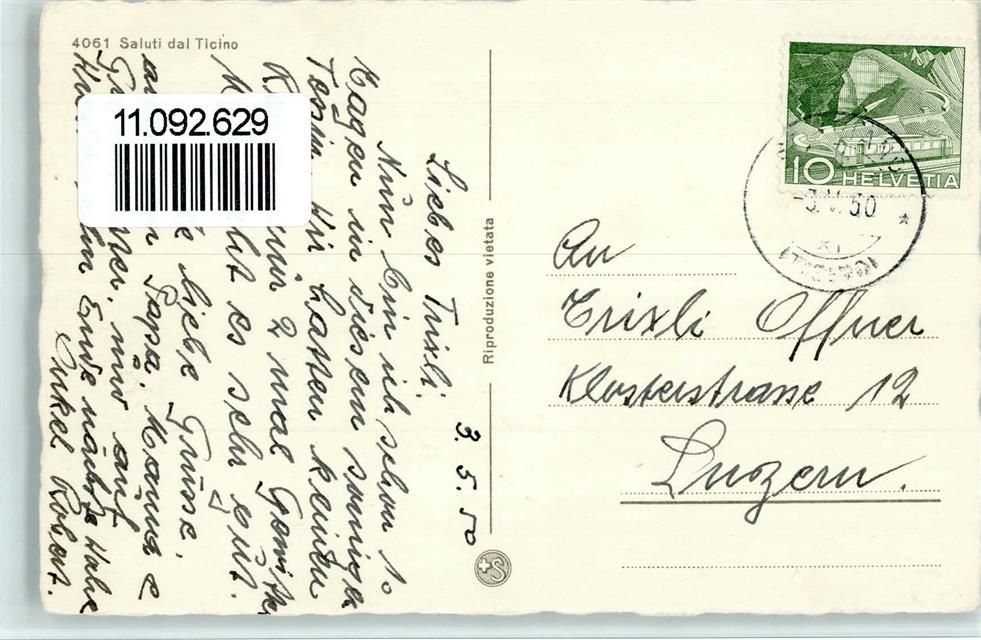 4061 Saluti dal Ticino
11.092.629
Riproduzione vietata
10
HELVETIA
-3.V.50
An
Trixli Offner
Klosterstrasse 12
Luzern.
3.5.50
Liebes Trixli,
Nun bin ich schon 10
Tagen in diesem sonnigen
Tessin. Wir hatten keinen
R nur 2 mal Gewitter
M es sehr gut.
liebe Grüsse,
Papa, Mama &
und auf
Ende nächste Woche
Onkel Robert.